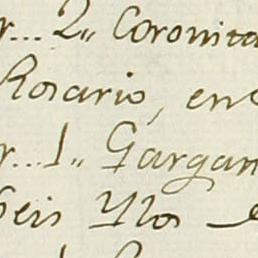 r... 2,, Coronita
Rosario, ent
r... 1,, Gargan
Seis Ylos